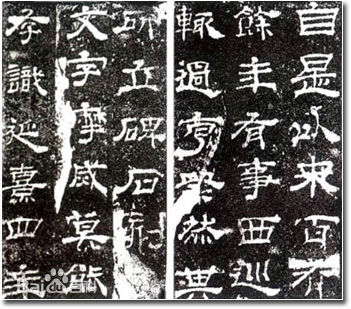 自是以來百有
餘年有事西巡
輒過亨祭然其
所立碑石刻
文字摩滅莫能
存識延熹四年
Bai百科